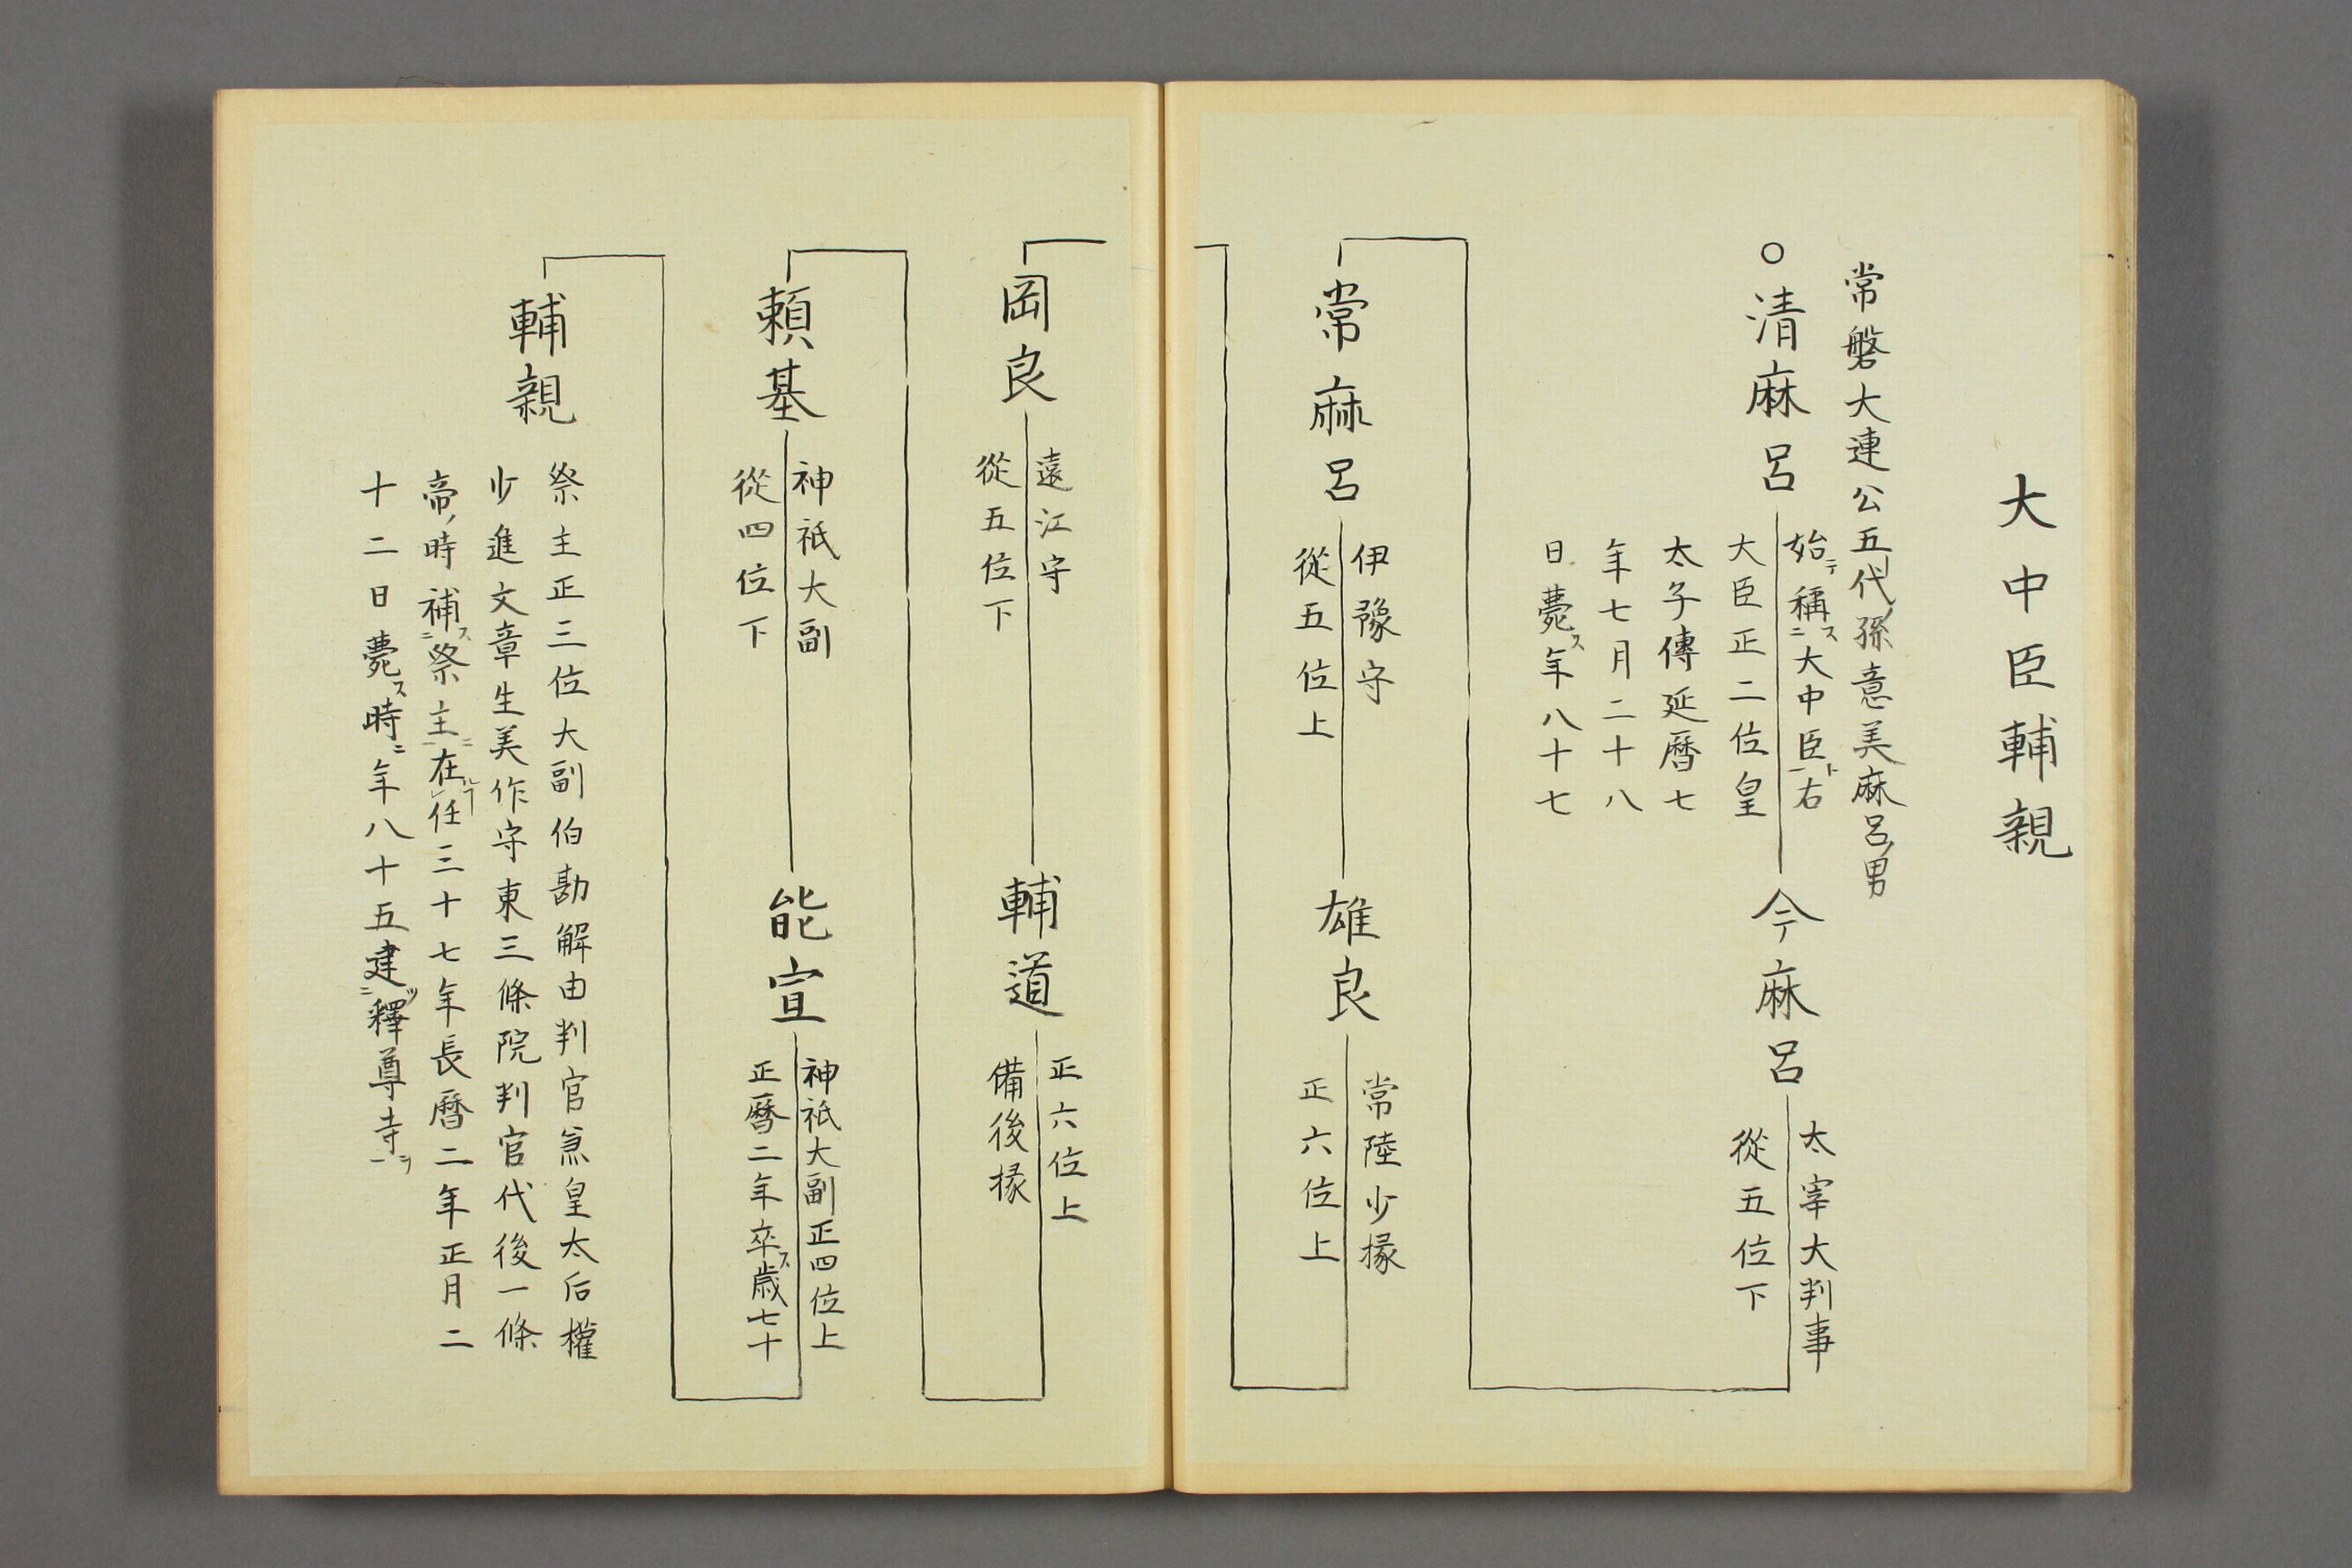 大中臣輔親
常磐大連公五代ノ孫意美麻呂ノ男
○清麻呂
始テ稱ス二大中臣ト一右
大臣正二位皇
太子傳延暦七
年七月二十八
日薨ス年八十七
今麻呂
太宰大判事
從五位下
常麻呂
伊豫守
從五位上
雄良
常陸少掾
正六位上
岡良
遠江守
從五位下
輔道
正六位上
備後掾
頼基
神祇大副
從四位下
能宣
神祇大副正四位上
正暦二年卒ス歳七十
輔親
祭主正三位大副伯勘解由判官兼皇太后權
少進文章生美作守東三條院判官代後一條
帝ノ時補ス二祭主ニ一在ルレ任三十七年長暦二年正月二
十二日薨ス時ニ年八十五建ツ二釋尊寺ヲ一